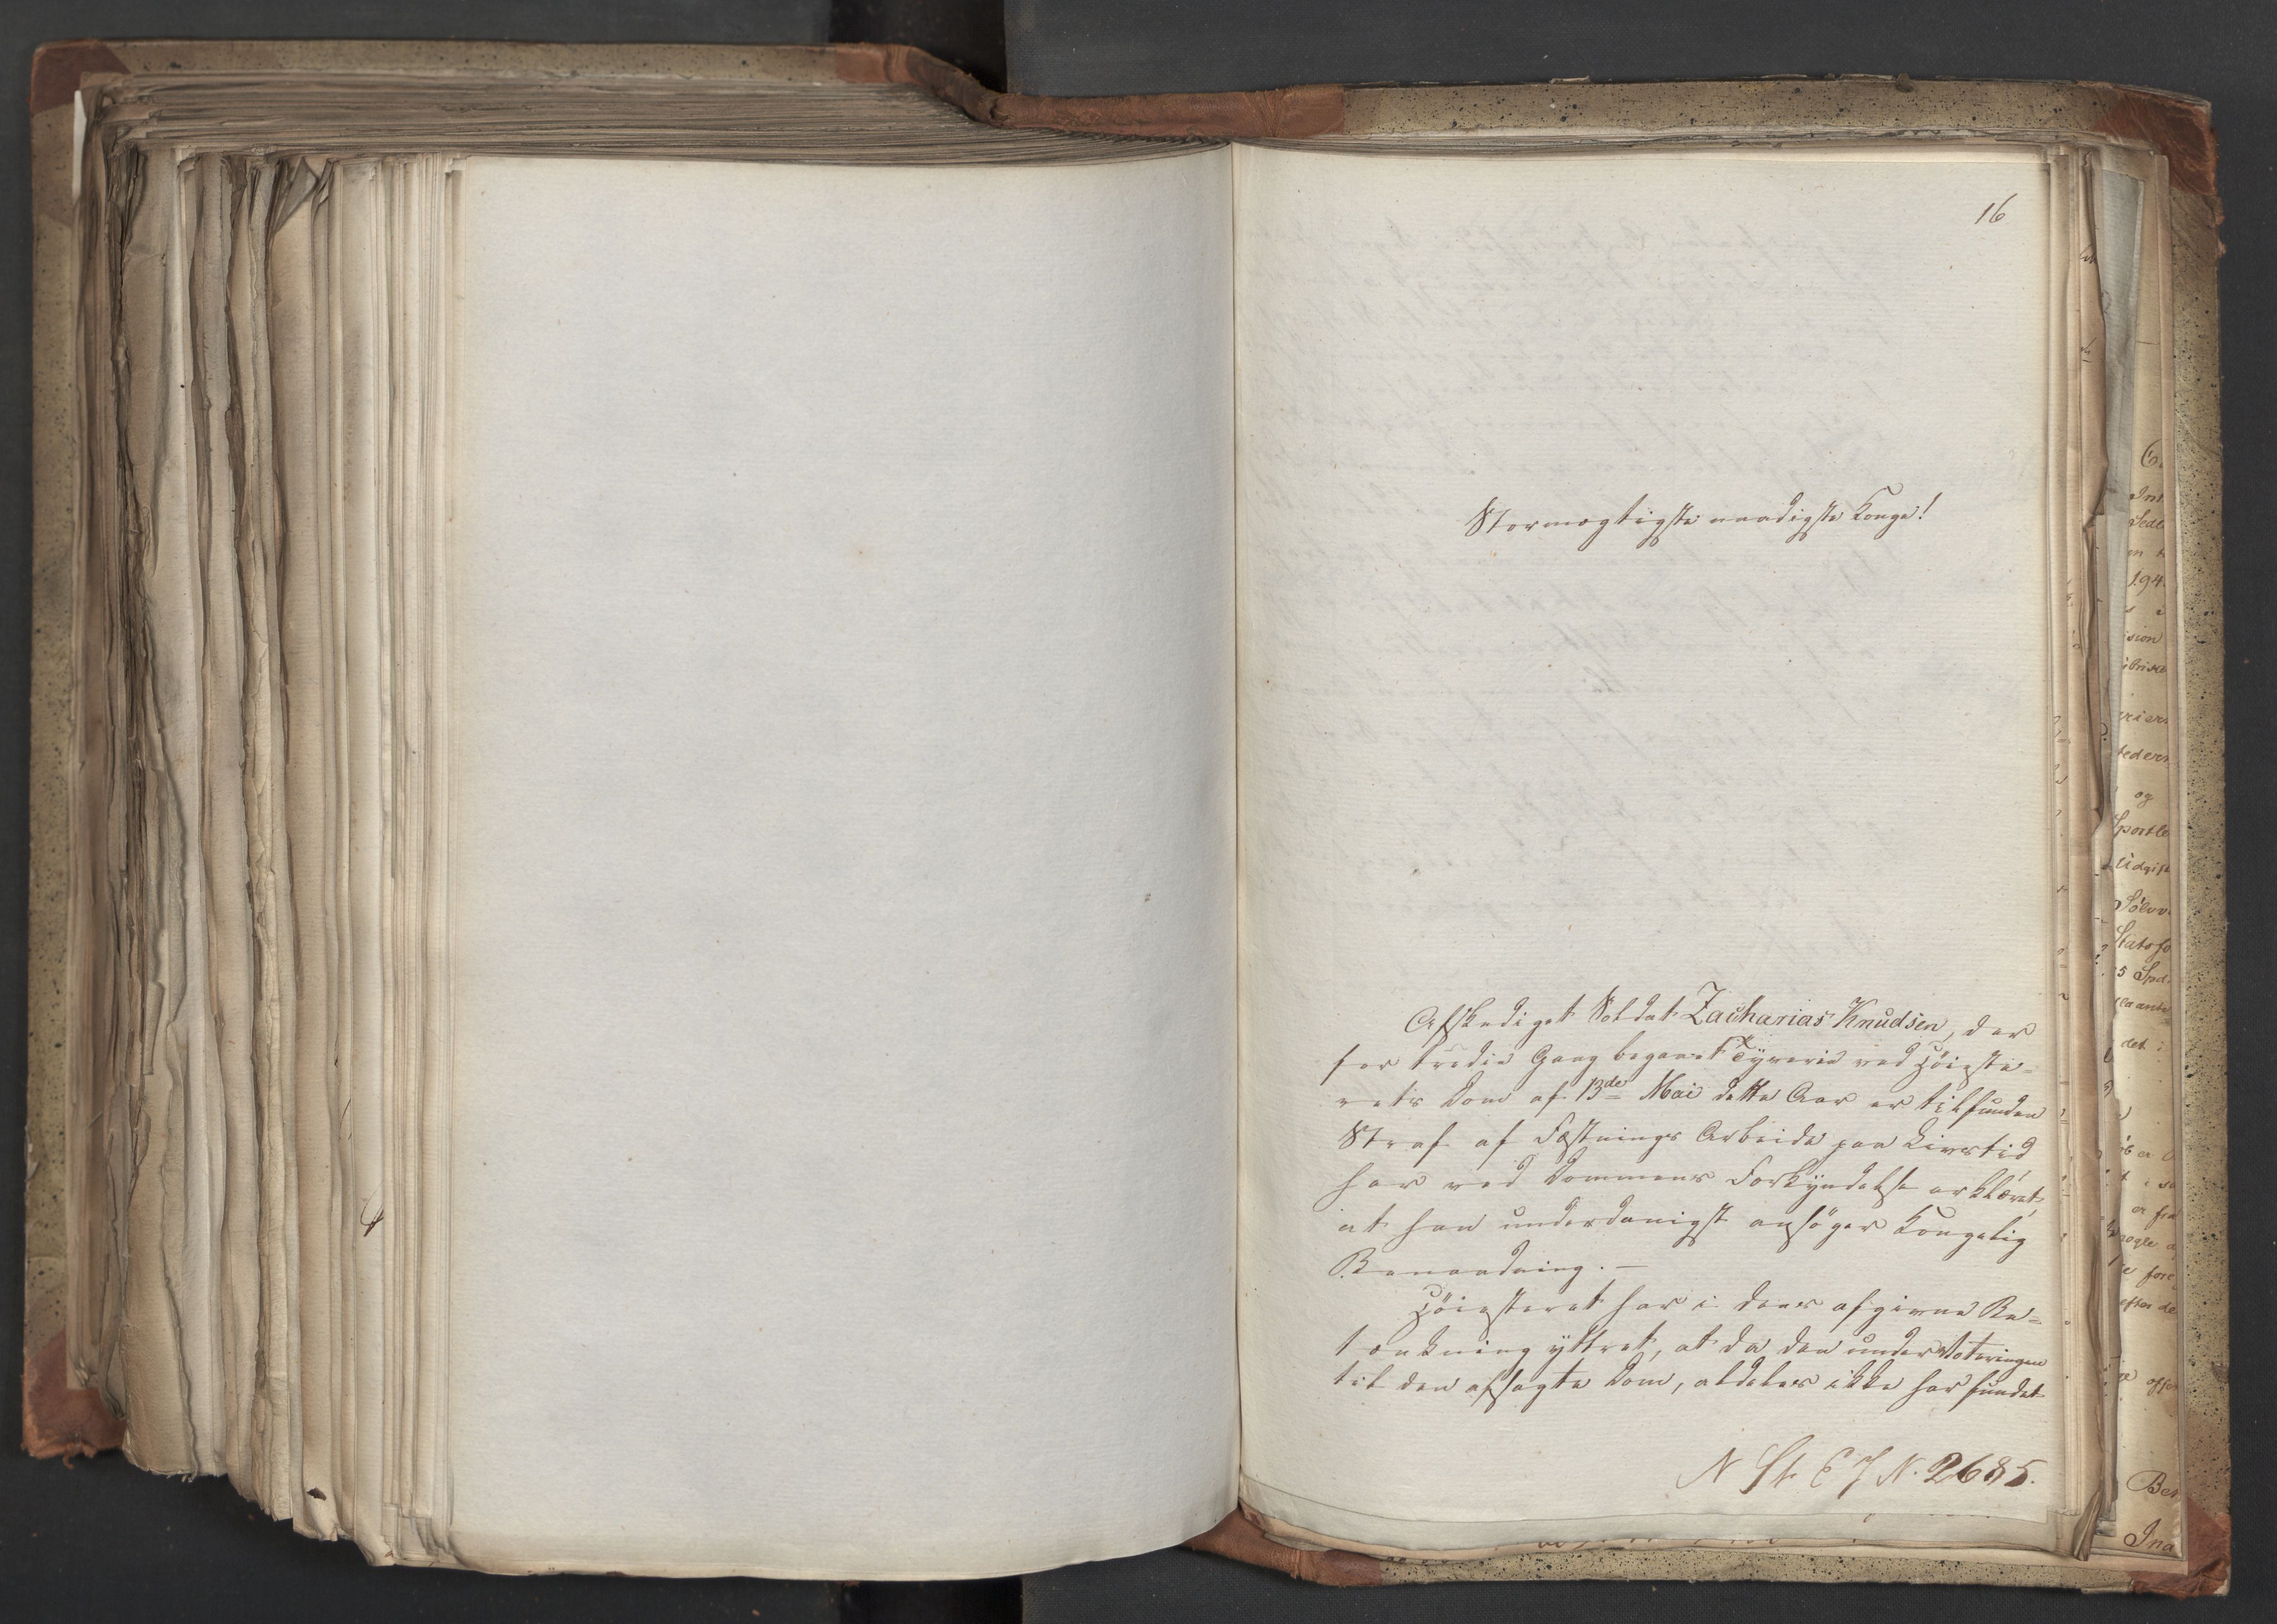 16
Stormægtigste naadigste Konge!
Afskediget Soldat Zacharias Knudsen, der
for tredie Gang begaaet Tyverie ved Høieste-
rets Dom af 13de Mai dette Aar er tilfunden
Straf af Fæstnings Arbeide paa Livstid
har ved Dommens Forkyndelse erklæret,
at han underdanigst ansøger Kongelig
Benaadning. —
Høiesteret har i dens afgivne Be-
tænkning yttret, at da den under Voteringen
til den afsagte Dom, aldeles ikke har fundet
N St E J N. 2685.